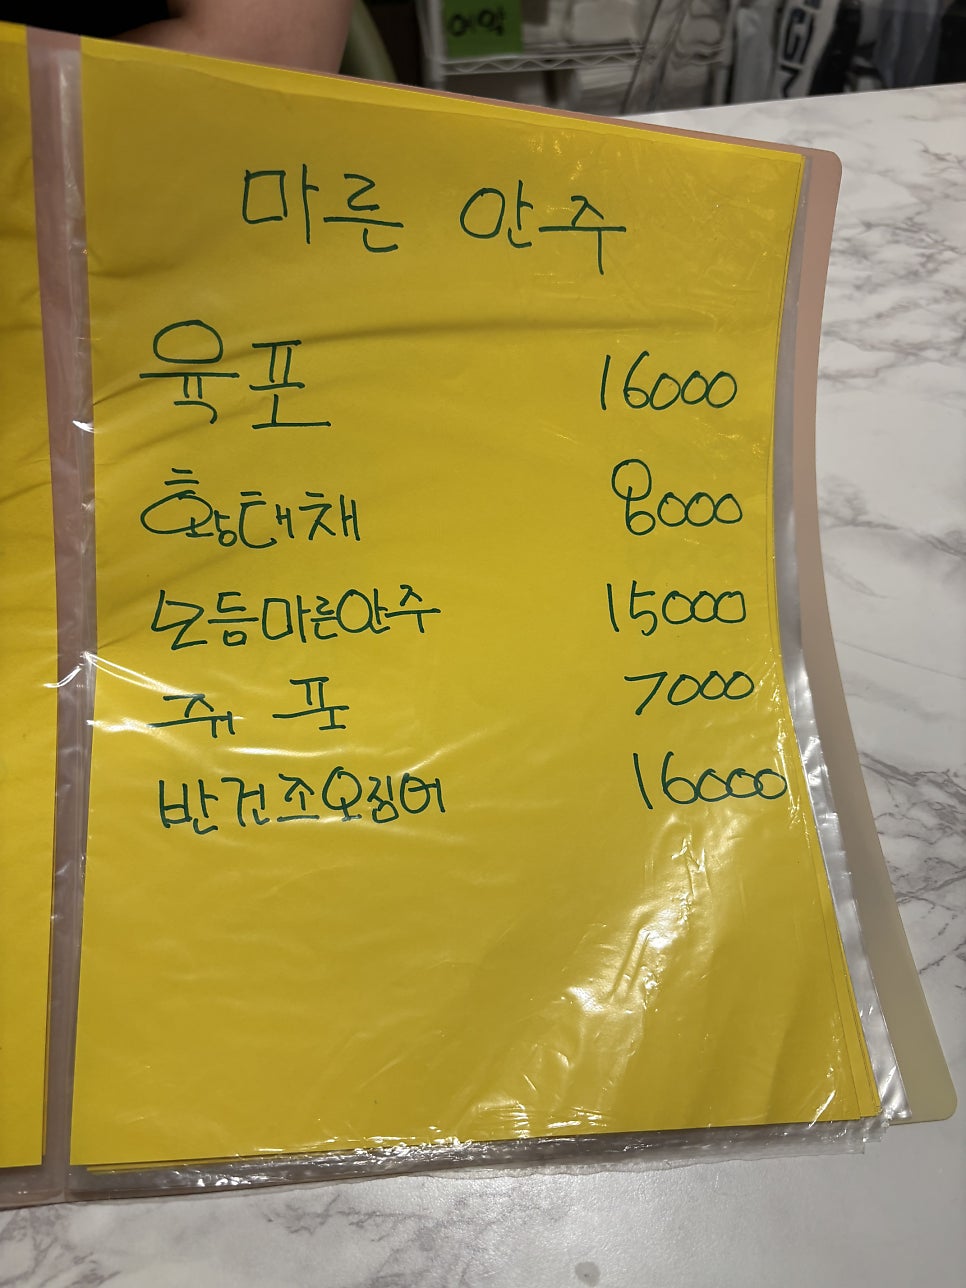 마른 안주
육포 16000
황태채 8000
모듬마른안주 15000
쥐 포 7000
반건조오징어 16000